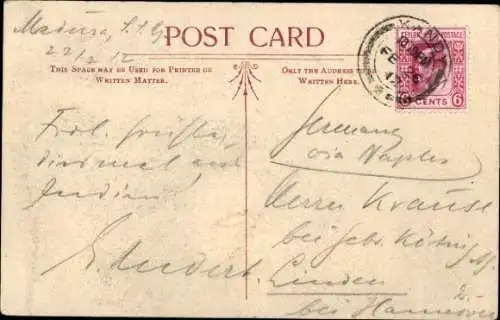 Madura,
22/2 12
POST CARD
THIS SPACE MAY BE USED FOR PRINTED OR
WRITTEN MATTER.
ONLY THE ADDRESS TO BE
WRITTEN HERE.
KANDY
CEYLON POSTAGE
6 CENTS 6
Germany
via Naples
Herrn Krause
bei Gebr. König
Linden
bei Hannover
Frdl. Grüße
diesmal aus
Indien!